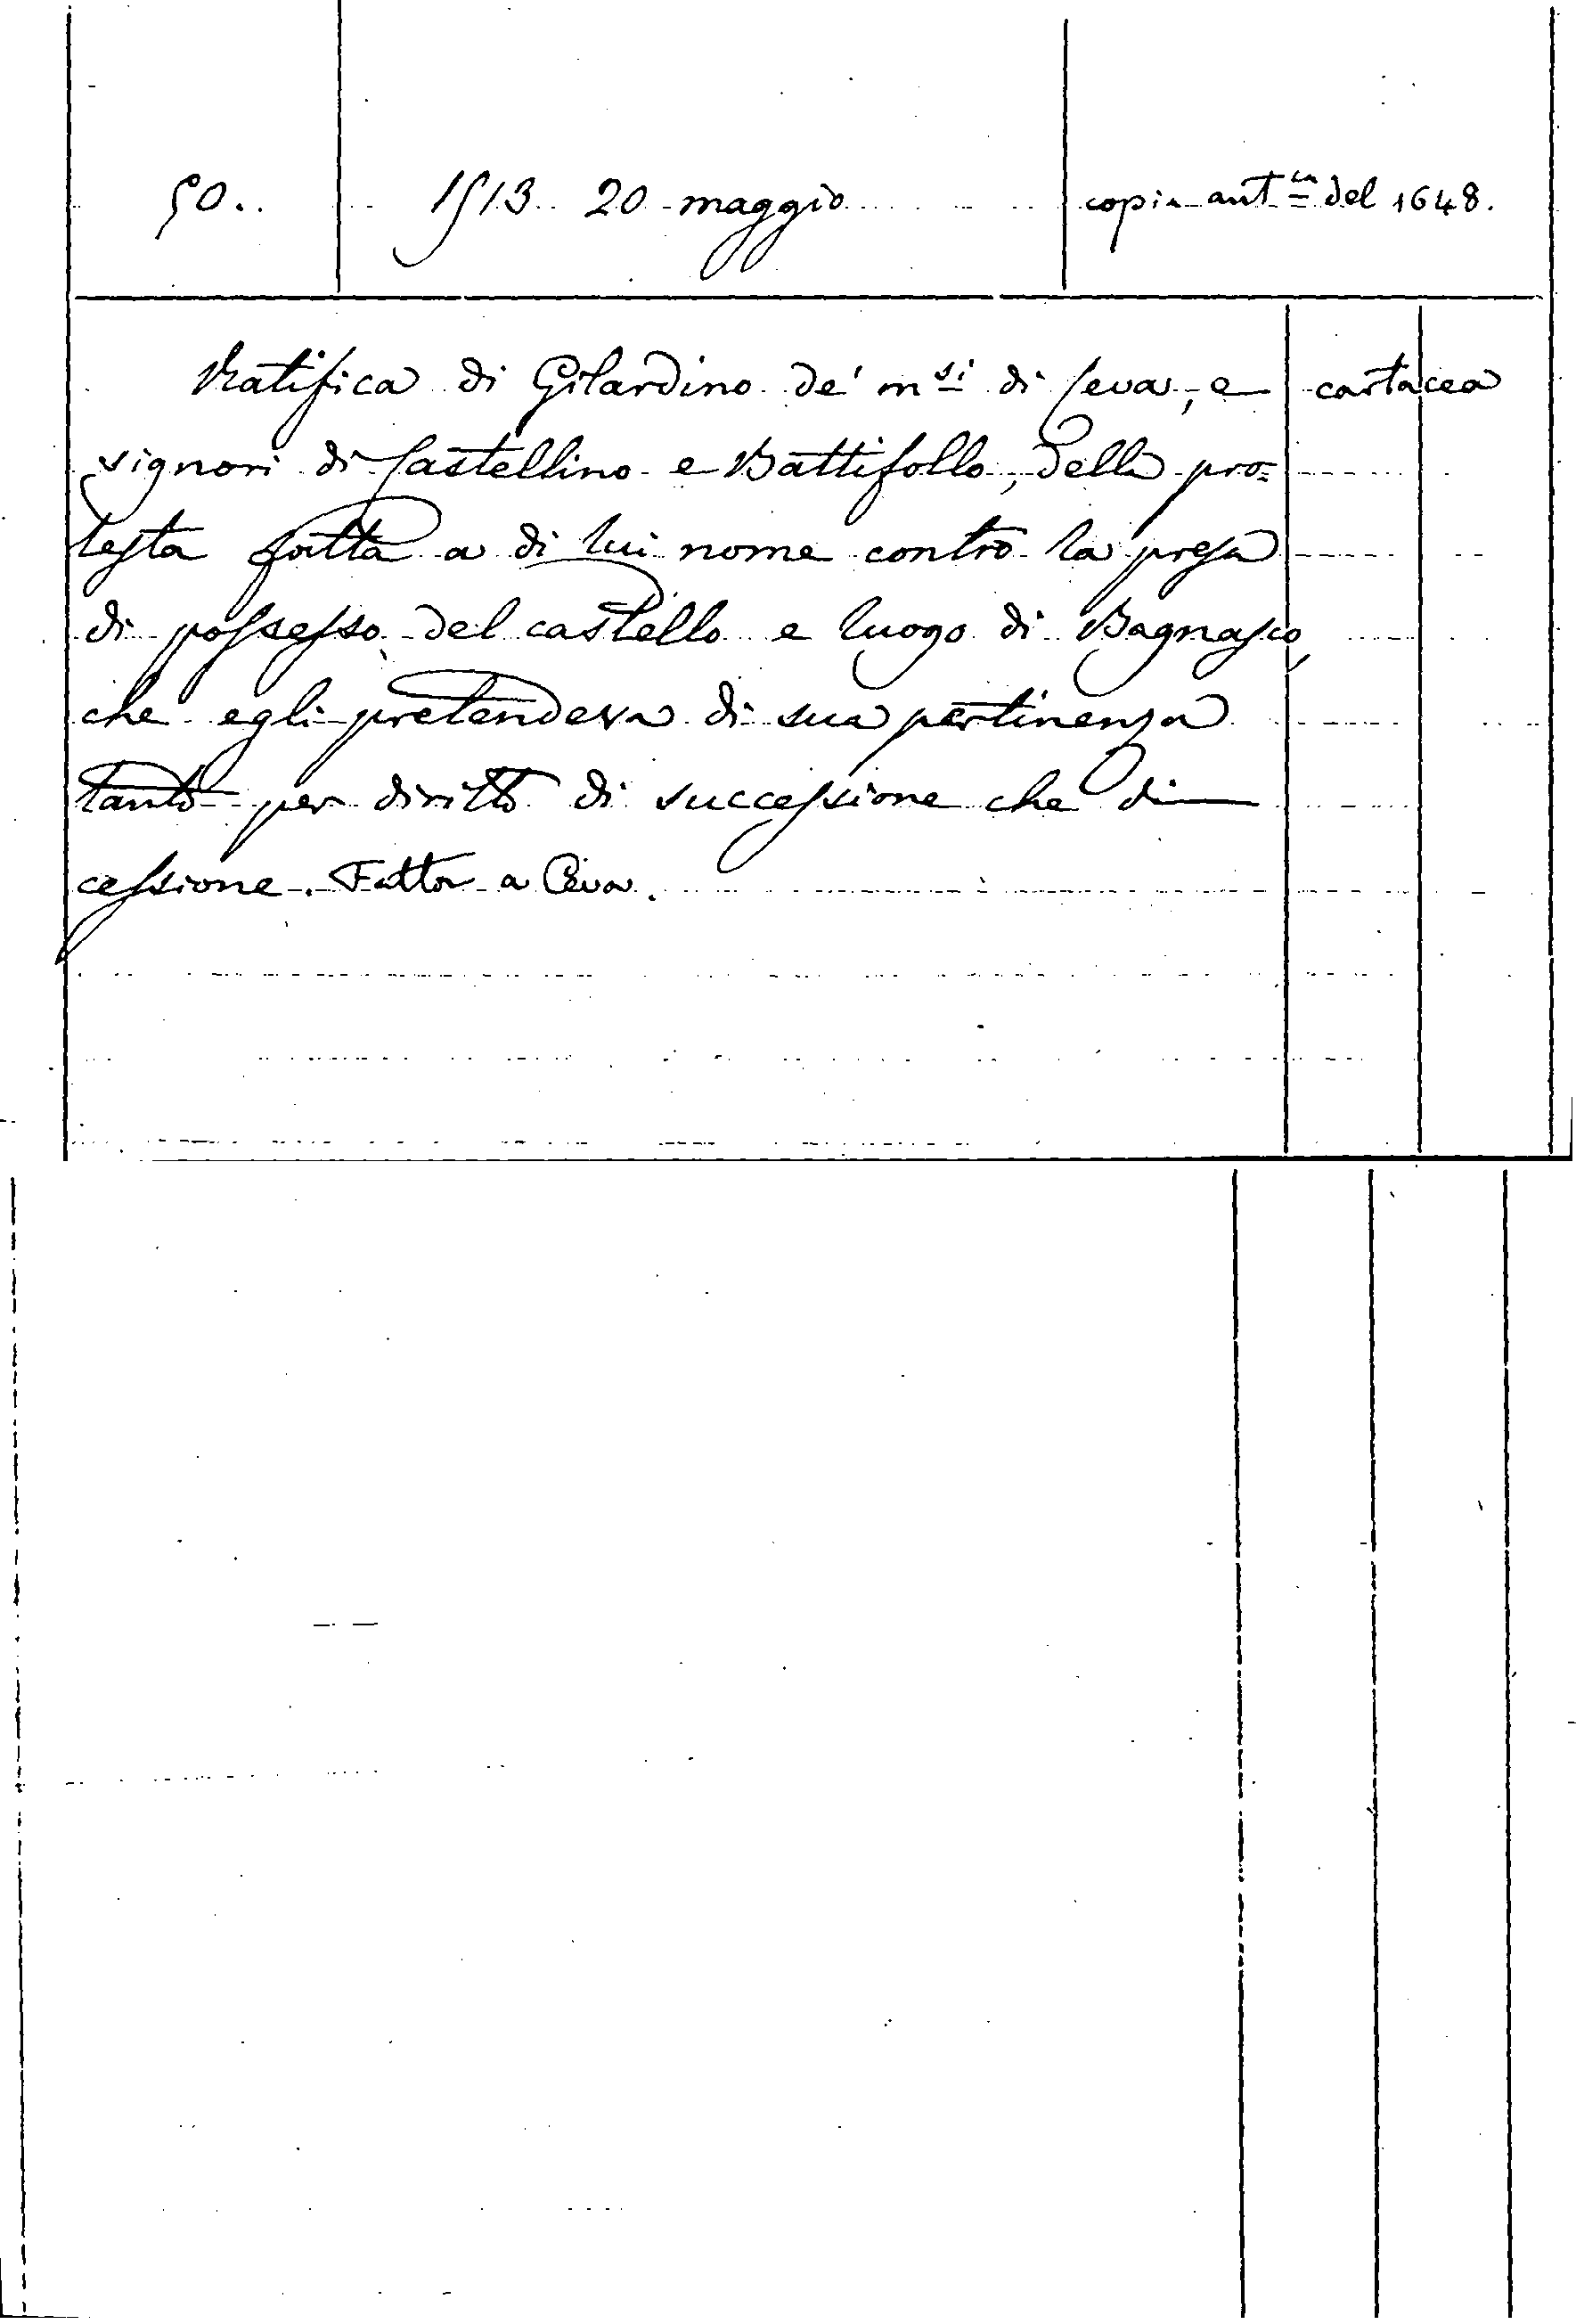 50. 1513 20 maggio copia aut.ca del 1648.
Ratifica di Gilardino de' m.si di Ceva, e cartacea
signori di Castellino e Battifollo, della pro=
testa fatta a di lui nome contro la presa
di possesso del castello e luogo di Bagnasco,
che egli pretendeva di sua pertinenza
tanto per diritto di successione che di
cessione. Fatta a Ceva.